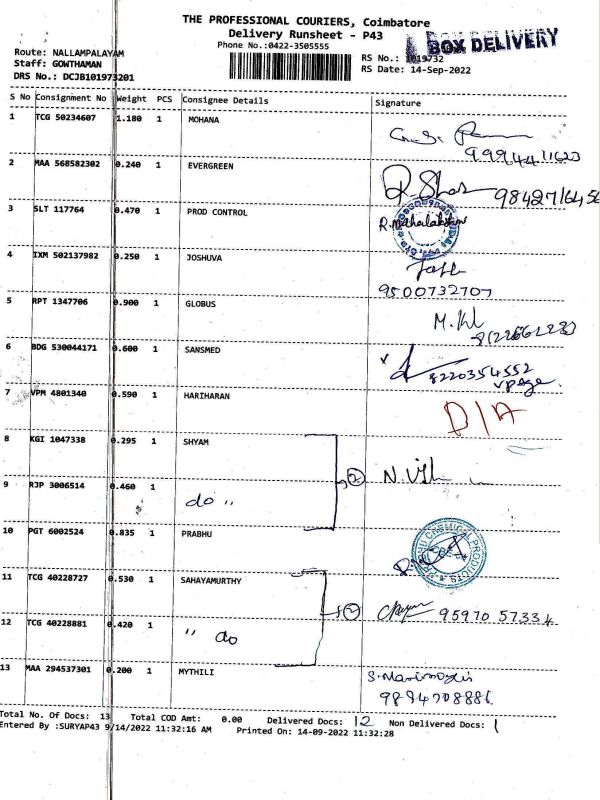 THE PROFESSIONAL COURIERS, Coimbatore
Delivery Runsheet - P43
BOX DELIVERY
Phone No.:0422-3505555
Route: NALLAMPALAYAM
Staff: GOWTHAMAN
DRS No.: DCJB101973201
RS No.: 1019732
RS Date: 14-Sep-2022
S No Consignment No Weight PCS Consignee Details Signature
1 TCG 50234607 1.180 1 MOHANA
9994411623
2 MAA 568582302 0.240 1 EVERGREEN
9842716456
3 SLT 117764 0.470 1 PROD CONTROL R.Mahalakshmi
4 IXM 502137982 0.250 1 JOSHUVA
9500732707
5 RPT 1347706 0.900 1 GLOBUS
6 BDG 530044171 0.600 1 SANSMED
8220354552
7 VPM 4801340 0.590 1 HARIHARAN D/A
8 KGI 1047338 0.295 1 SHYAM
2
9 RJP 3006514 0.460 1 do "
10 PGT 6002524 0.835 1 PRABHU
11 TCG 40228727 0.530 1 SAHAYAMURTHY
2 95970 57334
12 TCG 40228881 0.420 1 " do
13 MAA 294537301 0.200 1 MYTHILI
9894708886
Total No. Of Docs: 13 Total COD Amt: 0.00 Delivered Docs: 12 Non Delivered Docs: 1
Entered By :SURYAP43 9/14/2022 11:32:16 AM Printed On: 14-09-2022 11:32:28